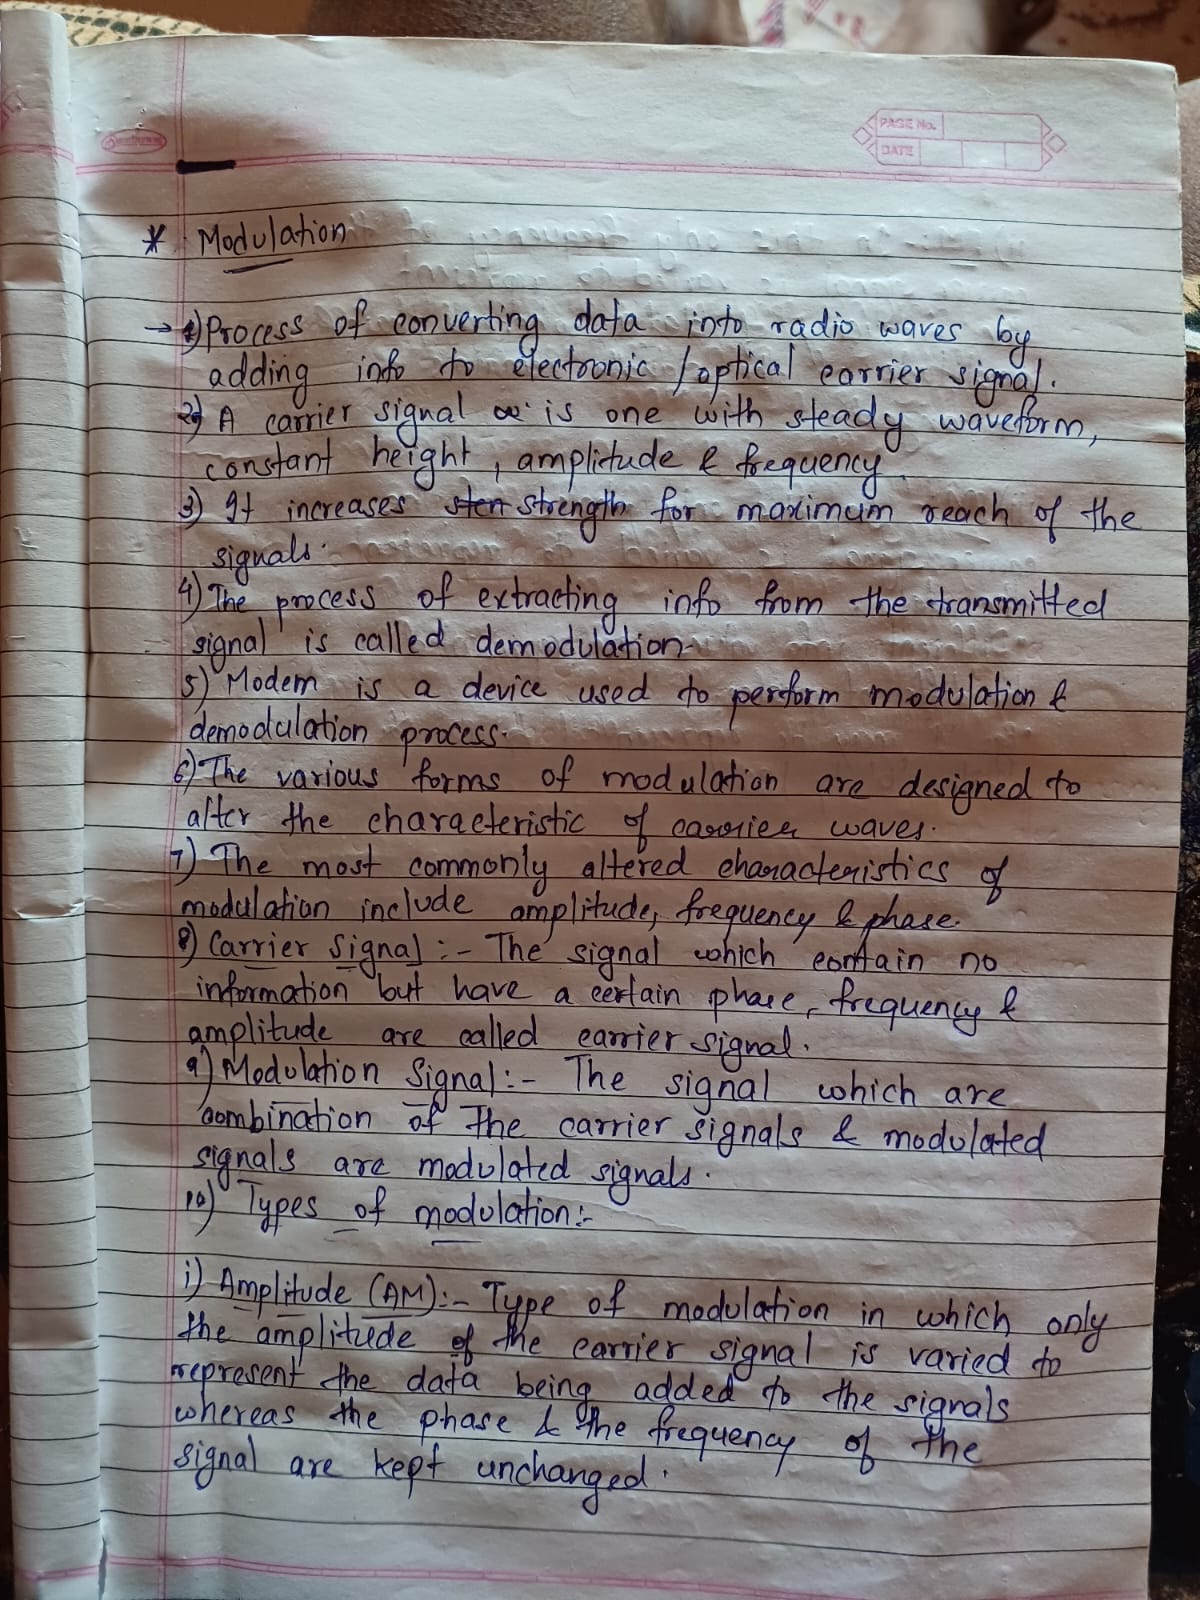 PAGE No.
DATE
* Modulation
→ 1) Process of converting data into radio waves by
adding info to electronic / optical carrier signal.
2) A carrier signal is one with steady waveform,
constant height, amplitude & frequency
3) It increases strength for maximum reach of the
signals.
4) The process of extracting info from the transmitted
signal is called demodulation.
5) Modem is a device used to perform modulation &
demodulation process.
6) The various forms of modulation are designed to
alter the characteristic of carrier waves.
7) The most commonly altered characteristics of
modulation include amplitude, frequency & phase.
8) Carrier Signal :- The signal which contain no
information but have a certain phase, frequency &
amplitude are called carrier signal.
9) Modulation Signal :- The signal which are
combination of the carrier signals & modulated
signals are modulated signals.
10) Types of modulation :-
i) Amplitude (AM) :- Type of modulation in which only
the amplitude of the carrier signal is varied to
represent the data being added to the signals
whereas the phase & the frequency of the
signal are kept unchanged.